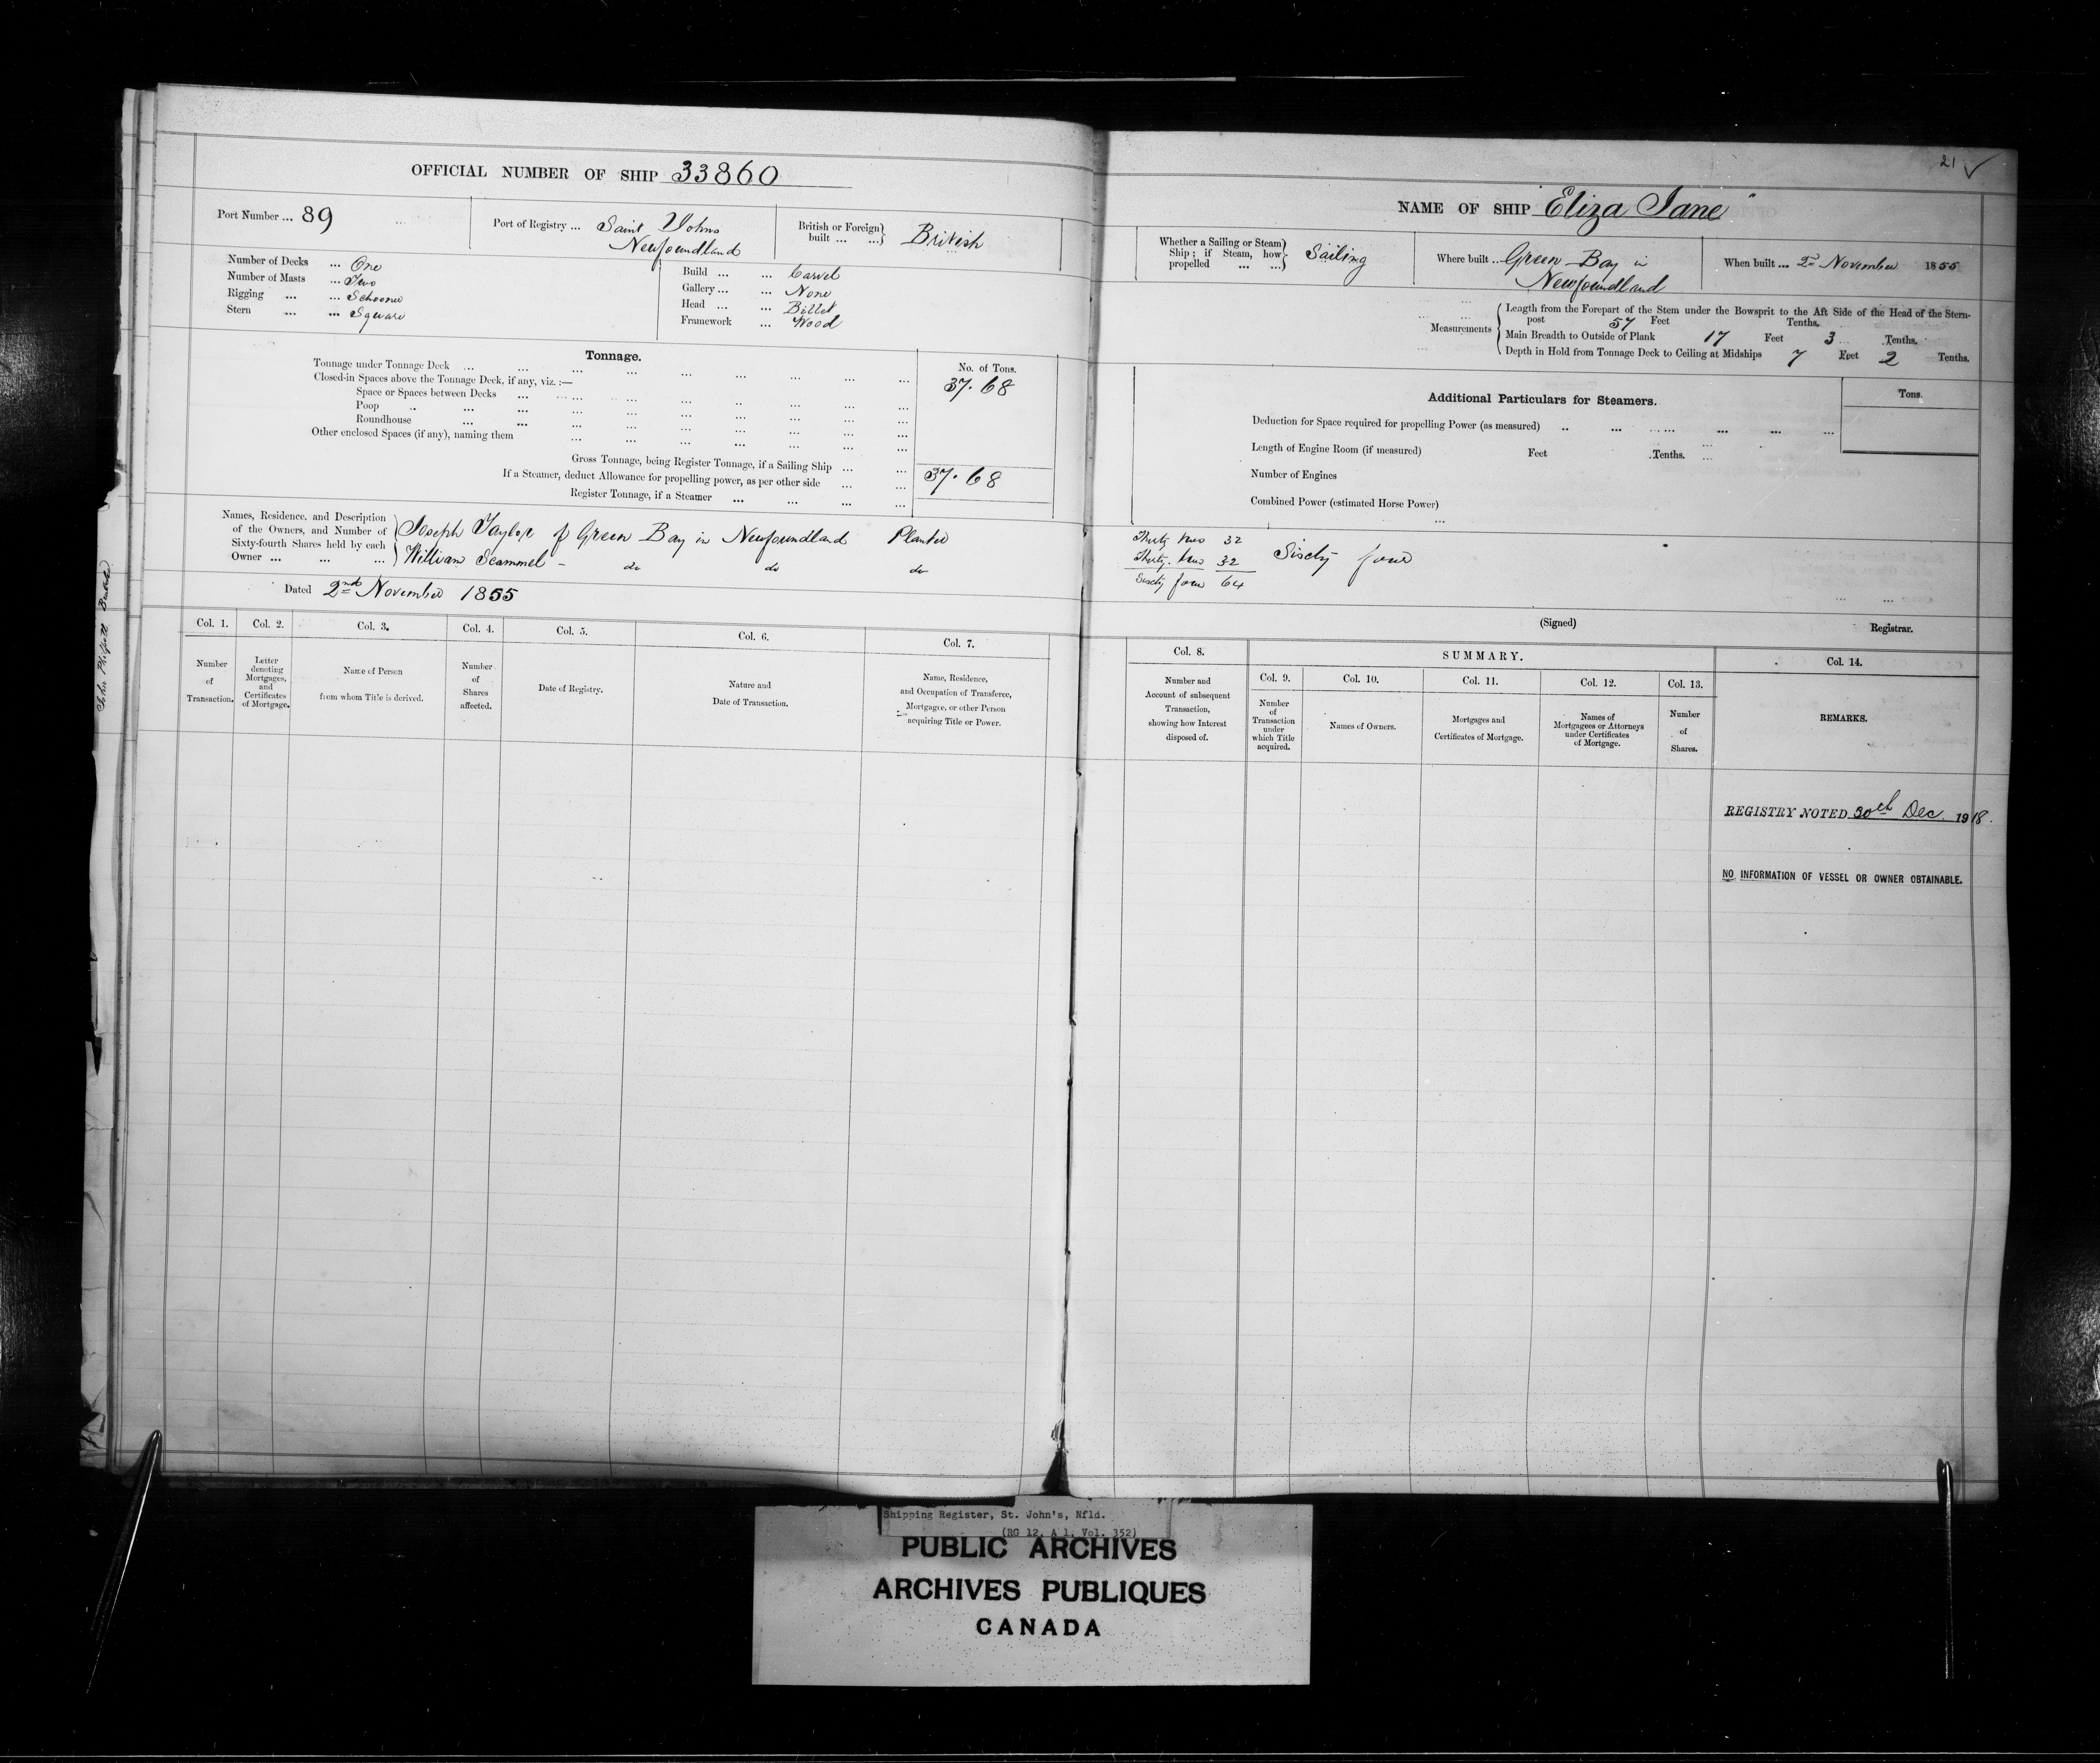 OFFICIAL NUMBER OF SHIP 33860
Port Number ... 89
Port of Registry ... Saint Johns
Newfoundland
British or Foreign
built ... ...} British
Number of Decks ... One
Number of Masts ... Two
Rigging ... ... Schooner
Stern ... ... Square
Build ... ... Carvel
Gallery ... ... None
Head ... ... Billet
Framework ... Wood
Tonnage.
No. of Tons.
Tonnage under Tonnage Deck ... 37.68
Closed-in Spaces above the Tonnage Deck, if any, viz. :—
Space or Spaces between Decks
Poop
Roundhouse
Other enclosed Spaces (if any), naming them
Gross Tonnage, being Register Tonnage, if a Sailing Ship ... ... 37.68
If a Steamer, deduct Allowance for propelling power, as per other side
Register Tonnage, if a Steamer
Names, Residence, and Description
of the Owners, and Number of
Sixty-fourth Shares held by each
Owner ... ... ...
Joseph Taylor of Green Bay in Newfoundland Planter
William Scammel - do do do
Dated 2nd November 1855
Col. 1. Col. 2. Col. 3. Col. 4. Col. 5. Col. 6. Col. 7.
Number
of
Transaction.
Letter
denoting
Mortgages,
and
Certificates
of Mortgage.
Name of Person
from whom Title is derived.
Number
of
Shares
affected.
Date of Registry.
Nature and
Date of Transaction.
Name, Residence,
and Occupation of Transferee,
Mortgagee, or other Person
acquiring Title or Power.
21 ✓
NAME OF SHIP "Eliza Jane"
Whether a Sailing or Steam
Ship ; if Steam, how
propelled ... ...} Sailing
Where built .. Green Bay in
Newfoundland
When built ... 2nd November 1855
Measurements
Length from the Forepart of the Stem under the Bowsprit to the Aft Side of the Head of the Stern-
post 57 Feet Tenths.
Main Breadth to Outside of Plank 17 Feet 3 Tenths.
Depth in Hold from Tonnage Deck to Ceiling at Midships 7 Feet 2 Tenths.
Additional Particulars for Steamers.
Tons.
Deduction for Space required for propelling Power (as measured)
Length of Engine Room (if measured) Feet Tenths.
Number of Engines
Combined Power (estimated Horse Power)
Thirty two 32
Thirty two 32
Sixty four 64
Sixty four
(Signed) Registrar.
Col. 8.
Number and
Account of subsequent
Transaction,
showing how Interest
disposed of.
SUMMARY.
Col. 9. Col. 10. Col. 11. Col. 12. Col. 13.
Number
of
Transaction
under
which Title
acquired.
Names of Owners.
Mortgages and
Certificates of Mortgage.
Names of
Mortgagees or Attorneys
under Certificates
of Mortgage.
Number
of
Shares.
Col. 14.
REMARKS.
REGISTRY NOTED 30th Dec. 1918.
NO INFORMATION OF VESSEL OR OWNER OBTAINABLE.
Shipping Register, St. John's, Nfld.
(RG 12, A 1, Vol. 352)
PUBLIC ARCHIVES
ARCHIVES PUBLIQUES
CANADA